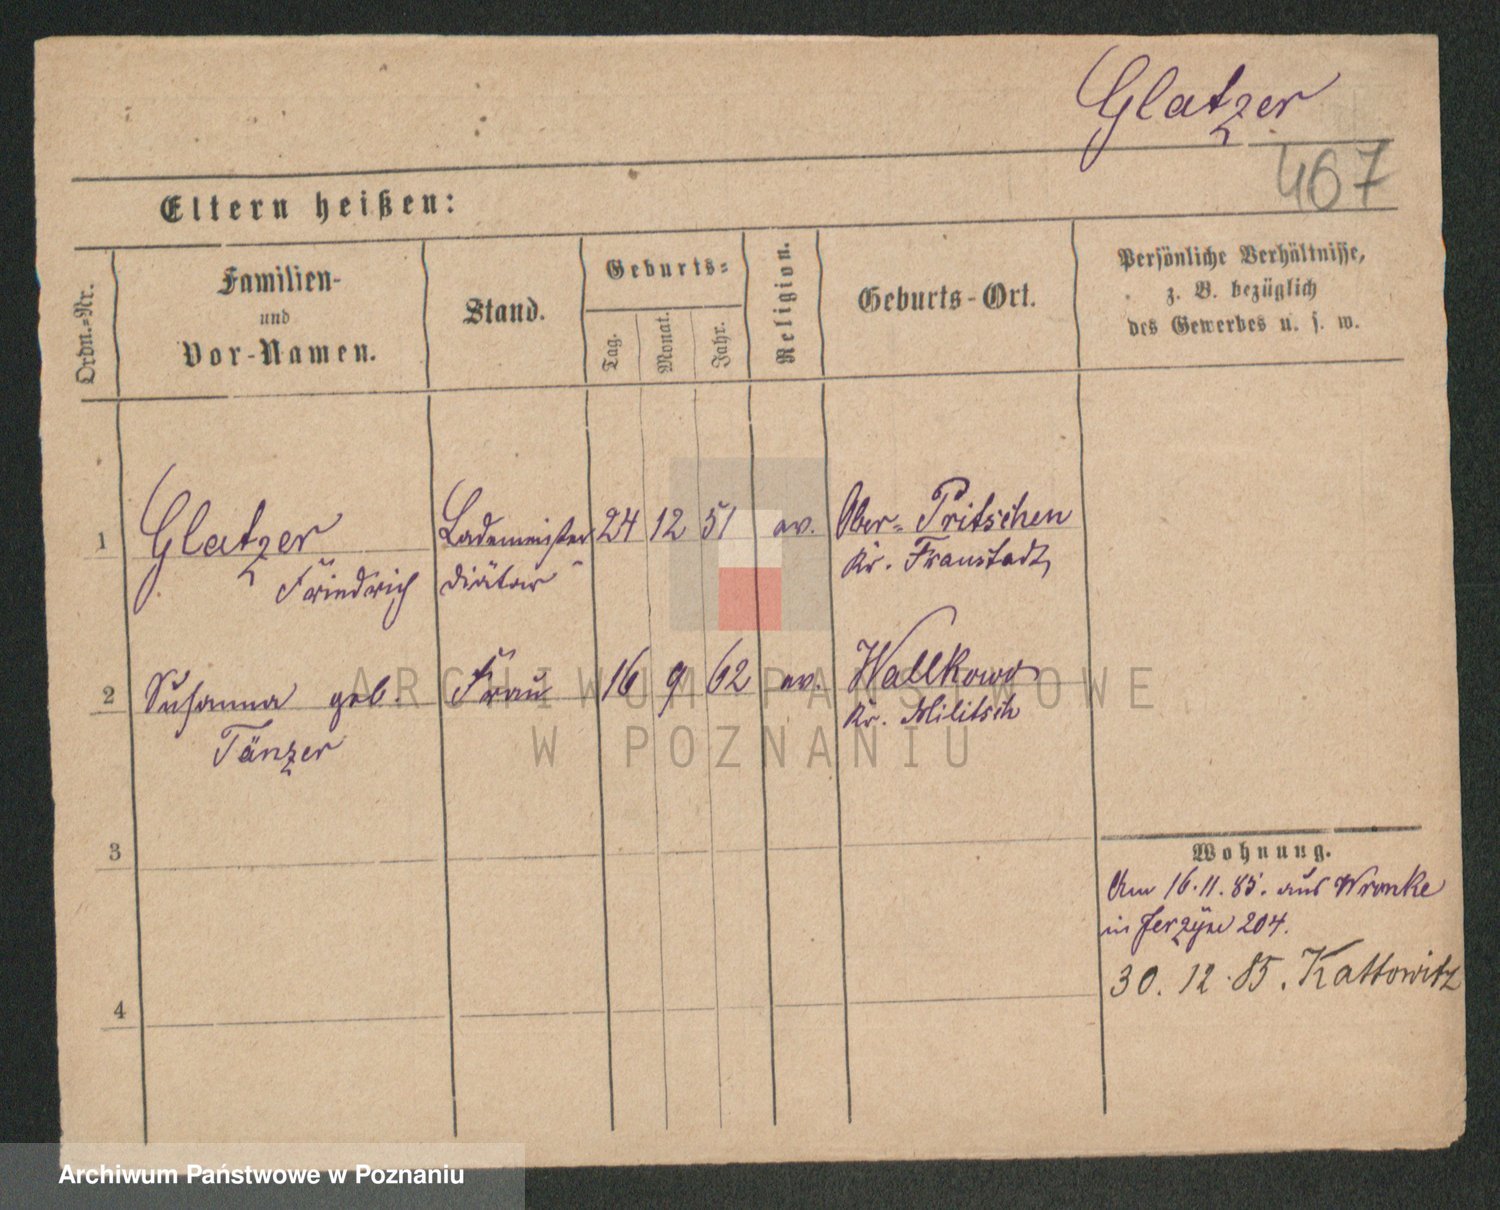 Glatzer
467
Eltern heißen:
Ordn.-Nr.
Familien-
und
Vor-Namen.
Stand.
Geburts-
Tag.
Monat.
Jahr.
Religion.
Geburts-Ort.
Persönliche Verhältnisse,
z. B. bezüglich
des Gewerbes u. s. w.
1 Glatzer Lademeister 24 12 51 ev. Ober-Pritschen
Friedrich Diätar Kr. Fraustadt,
2 Susanna geb. Frau 16 9 62 ev. Wallkowo
Tänzer Kr. Militsch
3
4
Wohnung.
Am 16.11.85. aus Wronke
in Jerzyce 204.
30. 12. 85. Kattowitz
ARCHIWUM PAŃSTWOWE
W POZNANIU
Archiwum Państwowe w Poznaniu